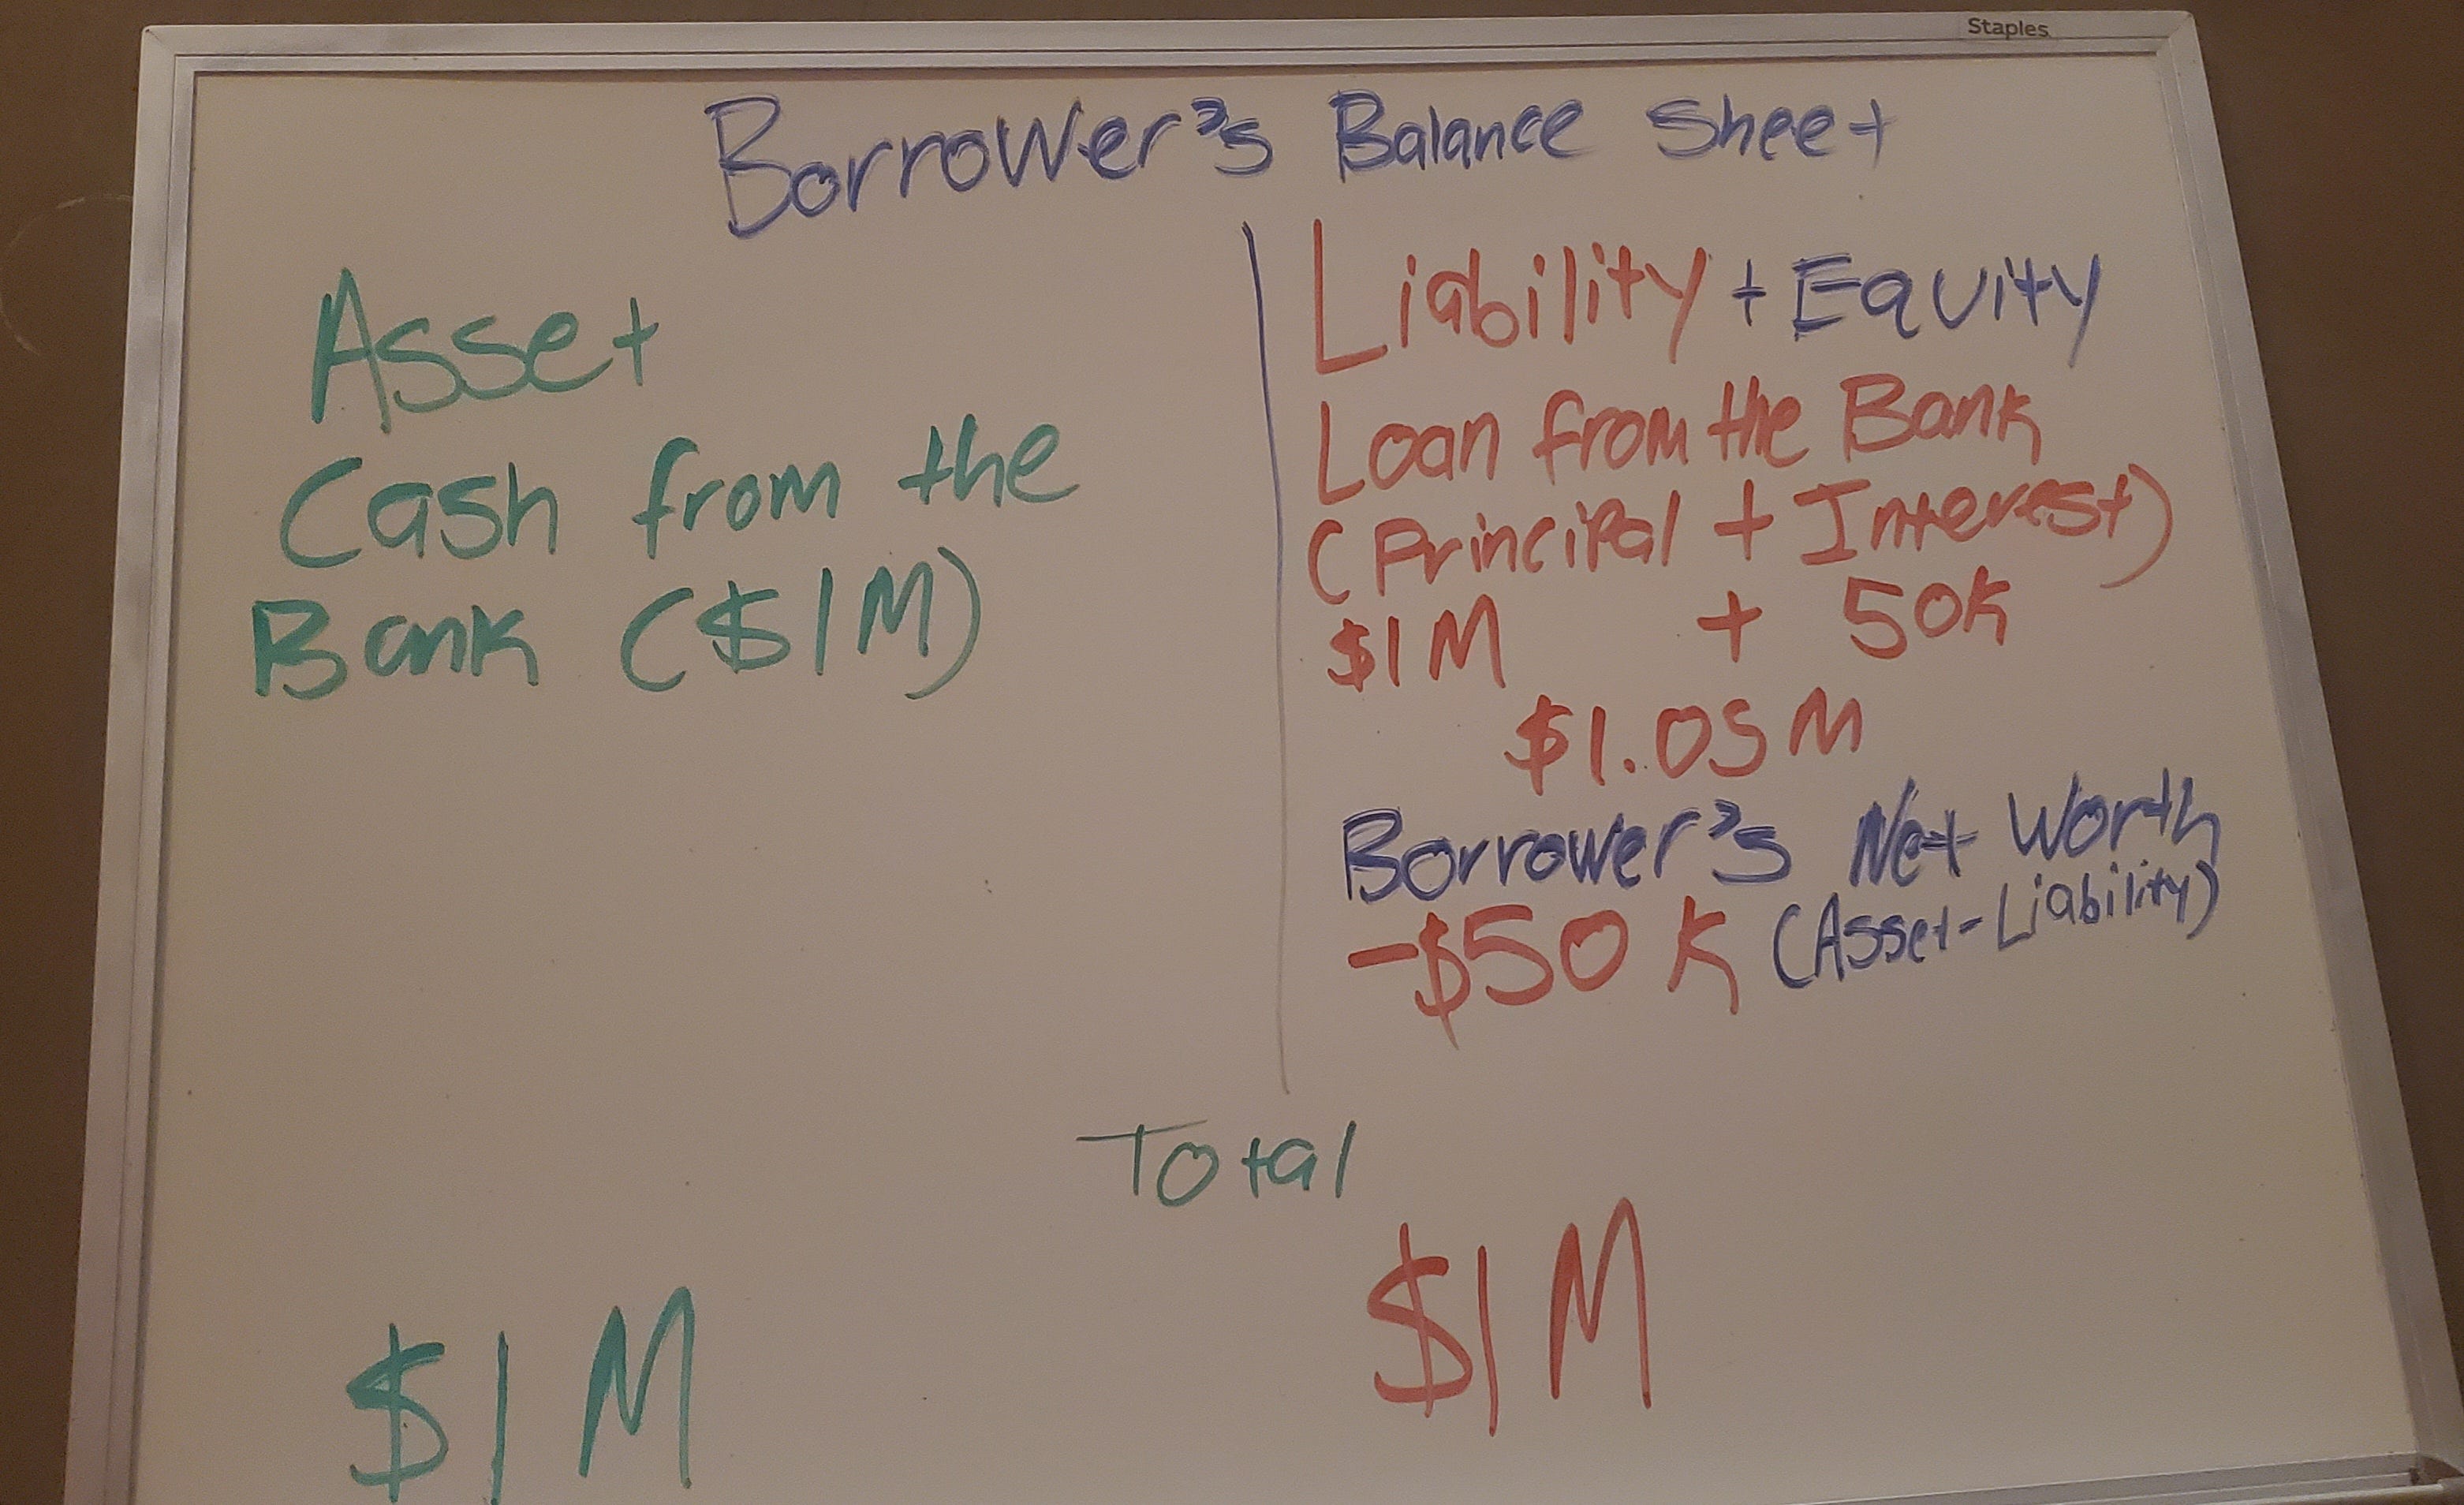 Staples
Borrower's Balance Sheet
Asset
Cash from the
Bank ($1M)
Liability + Equity
Loan from the Bank
(Principal + Interest)
$1M + 50K
$1.05M
Borrower's Net Worth
-$50K (Asset-Liability)
Total
$1M
$1M